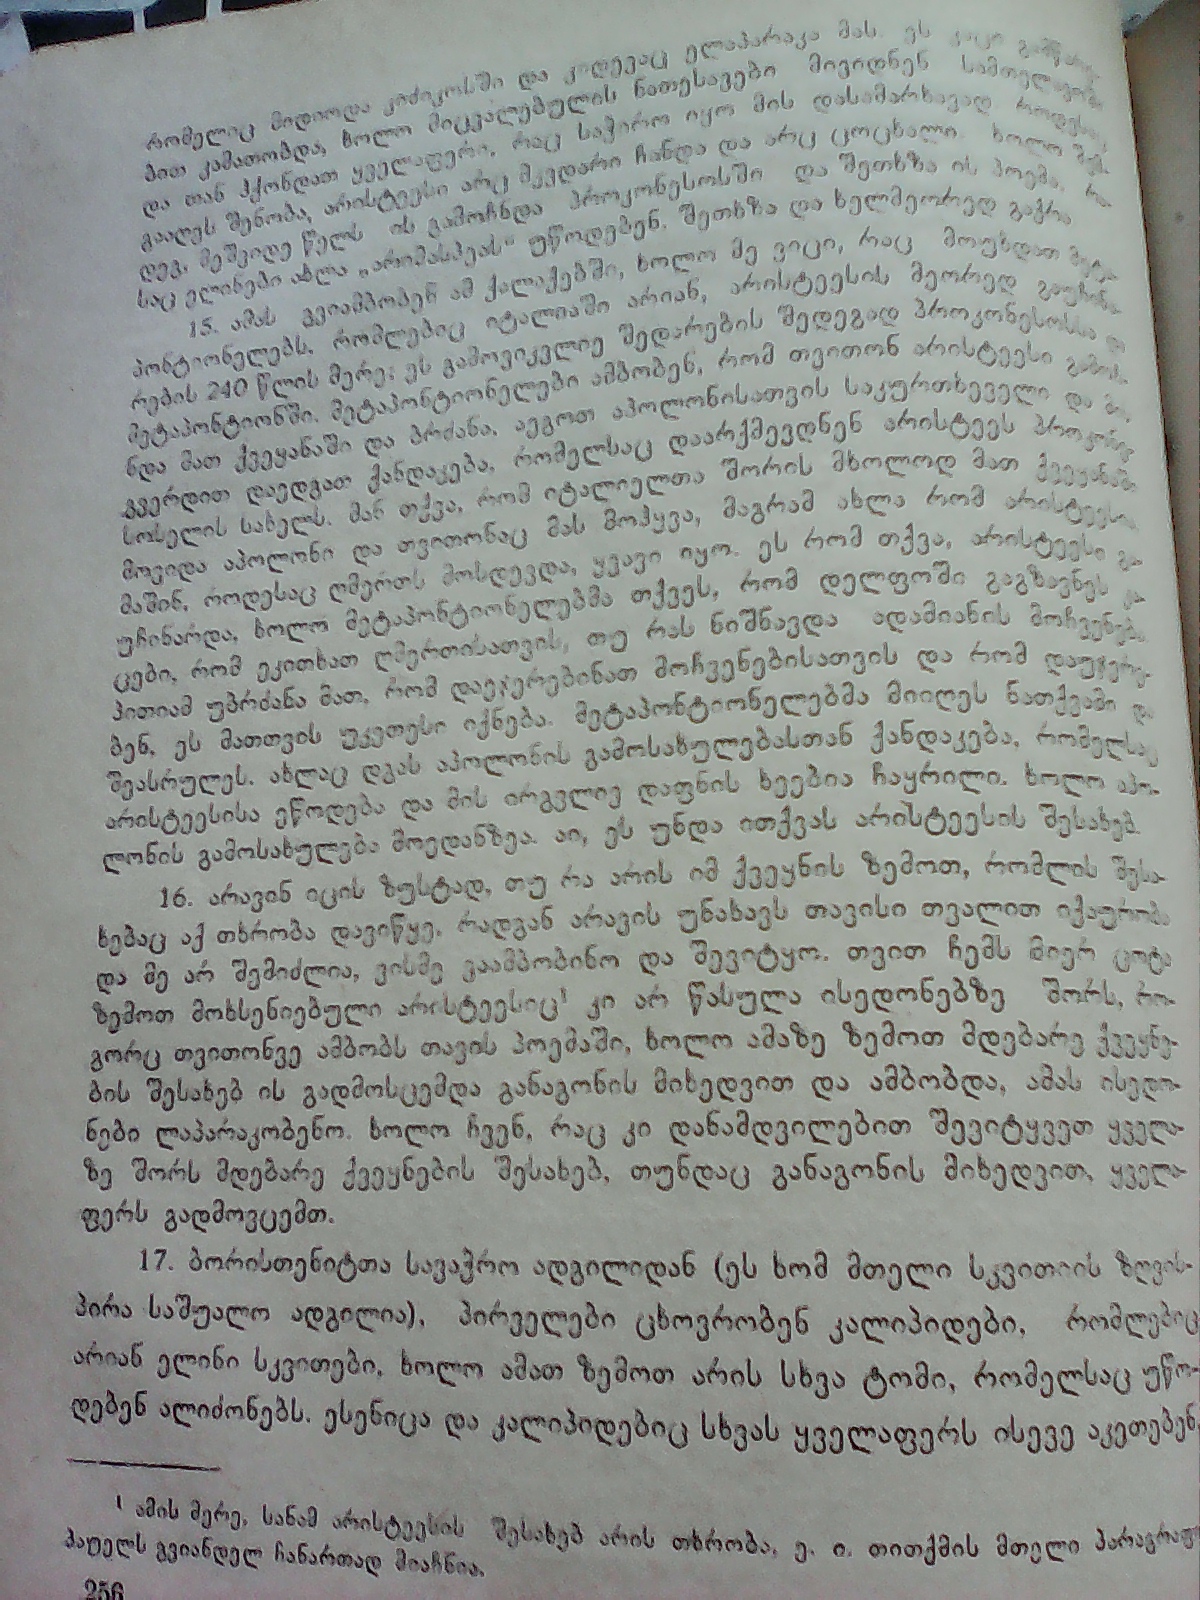 რომელიც მიდიოდა კიძიკოსში და კიდევაც ელაპარაკა მას. ეს კაცი
ბით კამათობდა, ხოლო მიცვალებულის ნათესავები მივიდნენ სამთელავოში
და თან ჰქონდათ ყველაფერი, რაც საჭირო იყო მის დასამარხავად როდესაც
გააღეს შენობა, არისტეესი არც მკვდარი ჩანდა და არც ცოცხალი. ხოლო შემ-
დეგ, მეშვიდე წელს ის გამოჩნდა პროკონესოსში და შეთხზა ის პოემა,
საც ელინები ახლა „არიმასპეას“ უწოდებენ. შეთხზა და ხელმეორედ გაქრა
15. ამას გვიამბობენ ამ ქალაქებში, ხოლო მე ვიცი, რაც მოუხდათ მეტა-
პონტიონელებს, რომლებიც იტალიაში არიან, არისტეესის მეორედ გაუჩინა-
რების 240 წლის მერე; ეს გამოვიკვლიე შედარების შედეგად პროკონესოსსა და
მეტაპონტიონში. მეტაპონტიონელები ამბობენ, რომ თვითონ არისტეესი გამოჩ-
ნდა მათ ქვეყანაში და ბრძანა, აეგოთ აპოლონისათვის საკურთხეველი და
გვერდით დაედგათ ქანდაკება, რომელსაც დაარქმევდნენ არისტეეს პროკონე-
სოსელის სახელს. მან თქვა, რომ იტალიელთა შორის მხოლოდ მათ ქვეყანაში
მოვიდა აპოლონი და თვითონაც მას მოჰყვა, მაგრამ ახლა რომ არისტეესია,
მაშინ, როდესაც ღმერთს მოსდევდა, ყვავი იყო. ეს რომ თქვა, არისტეესი გა-
უჩინარდა, ხოლო მეტაპონტიონელებმა თქვეს, რომ დელფოში გაგზავნეს კა-
ცები, რომ ეკითხათ ღმერთისათვის, თუ რას ნიშნავდა ადამიანის მოჩვენება.
პითიამ უბრძანა მათ, რომ დაეჯერებინათ მოჩვენებისათვის და რომ დაუჯერე-
ბენ, ეს მათთვის უკეთესი იქნება. მეტაპონტიონელებმა მიიღეს ნათქვამი და
შეასრულეს. ახლაც დგას აპოლონის გამოსახულებასთან ქანდაკება, რომელსაც
არისტეესისა ეწოდება და მის ირგვლივ დაფნის ხეებია ჩაყრილი. ხოლო აპო-
ლონის გამოსახულება მოედანზეა. აი, ეს უნდა ითქვას არისტეესის შესახებ.
16. არავინ იცის ზუსტად, თუ რა არის იმ ქვეყნის ზემოთ, რომლის შესა-
ხებაც აქ თხრობა დავიწყე, რადგან არავის უნახავს თავისი თვალით იქაურობა
და მე არ შემიძლია, ვისმე ვაამბობინო და შევიტყო. თვით ჩემს მიერ ცოტა
ზემოთ მოხსენიებული არისტეესიც¹ კი არ წასულა ისედონებზე შორს, რო-
გორც თვითონვე ამბობს თავის პოემაში, ხოლო ამაზე ზემოთ მდებარე ქვეყნე-
ბის შესახებ ის გადმოსცემდა განაგონის მიხედვით და ამბობდა, ამას ისედო-
ნები ლაპარაკობენო. ხოლო ჩვენ, რაც კი დანამდვილებით შევიტყვეთ ყველა-
ზე შორს მდებარე ქვეყნების შესახებ, თუნდაც განაგონის მიხედვით, ყველა-
ფერს გადმოვცემთ.
17. ბორისთენიტთა სავაჭრო ადგილიდან (ეს ხომ მთელი სკვითიის ზღვის-
პირა საშუალო ადგილია), პირველები ცხოვრობენ კალიპიდები, რომლებიც
არიან ელინი სკვითები, ხოლო ამათ ზემოთ არის სხვა ტომი, რომელსაც უწო-
დებენ ალიძონებს. ესენიცა და კალიპიდებიც სხვას ყველაფერს ისევე აკეთებენ,
¹ ამის მერე, სანამ არისტეესის შესახებ არის თხრობა, ე. ი. თითქმის მთელი პარაგრაფი
პაუელს გვიანდელ ჩანართად მიაჩნია.
256